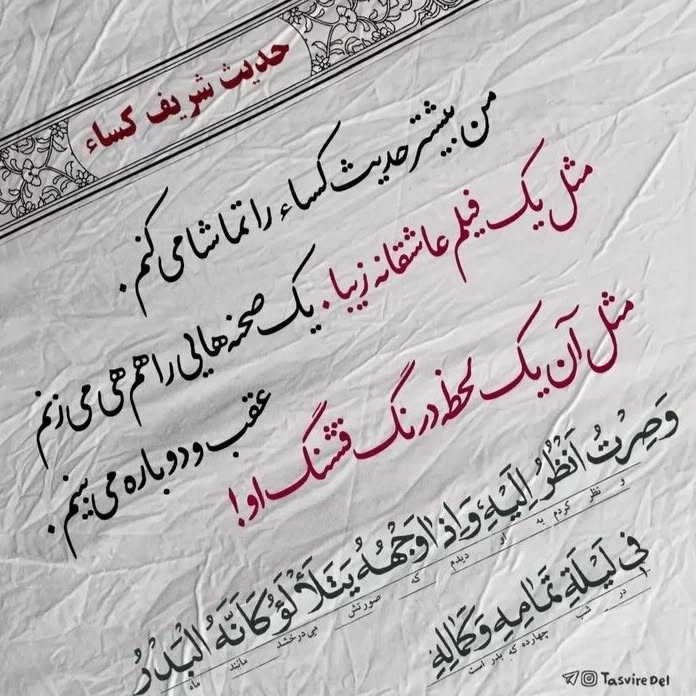 حدیث شریف کساء
من بیشتر حدیث کساء را تماشا می کنم.
مثل یک فیلم عاشقانه زیبا. یک صحنه هایی را هم هی می زنم
عقب و دوباره می بینم.
مثل آن یک لحظه درنگ قشنگ او!
وَصِرْتُ اَنْظُرُ اِلَیْهِ وَاِذا وَجْهُهُ یَتَلَأْلَؤُ کَاَنَّهُ الْبَدْرُ
و نظر کردم به او دیدم که صورتش می درخشد مانند ماه
فی لَیْلَةِ تَمامِهِ وَکَمالِهِ
در شب چهارده که بدر است
TasvireDel